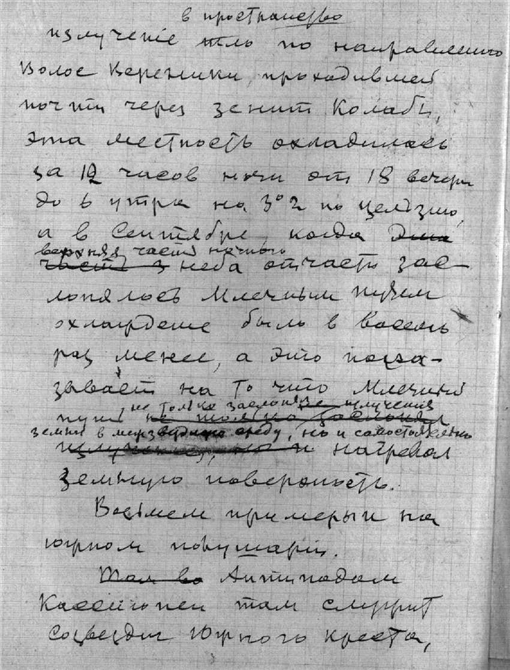 в пространство
излученіе шло по направленію
Волос Вереники, проходившей
почти через зенит Колабы,
эта местность охладилась
за 12 часов ночи от 18 вечера
до 6 утра на 3°2 по Цельзию,
а в Сентябре, когда
верхняя часть ночного
неба отчасти зас-
лонялось Млечным путем
охлаждение было в восемь
раз менее, а это пока-
зывает на то что Млечный
путь не только заслонял излучения
земли в межзвездную среду, но и самостоятельно
нагревал
земную поверхность.
Возьмем примеры и на
южном полушаріи.
Антиподом
Кассіопеи там служит
созвездие Южного креста,